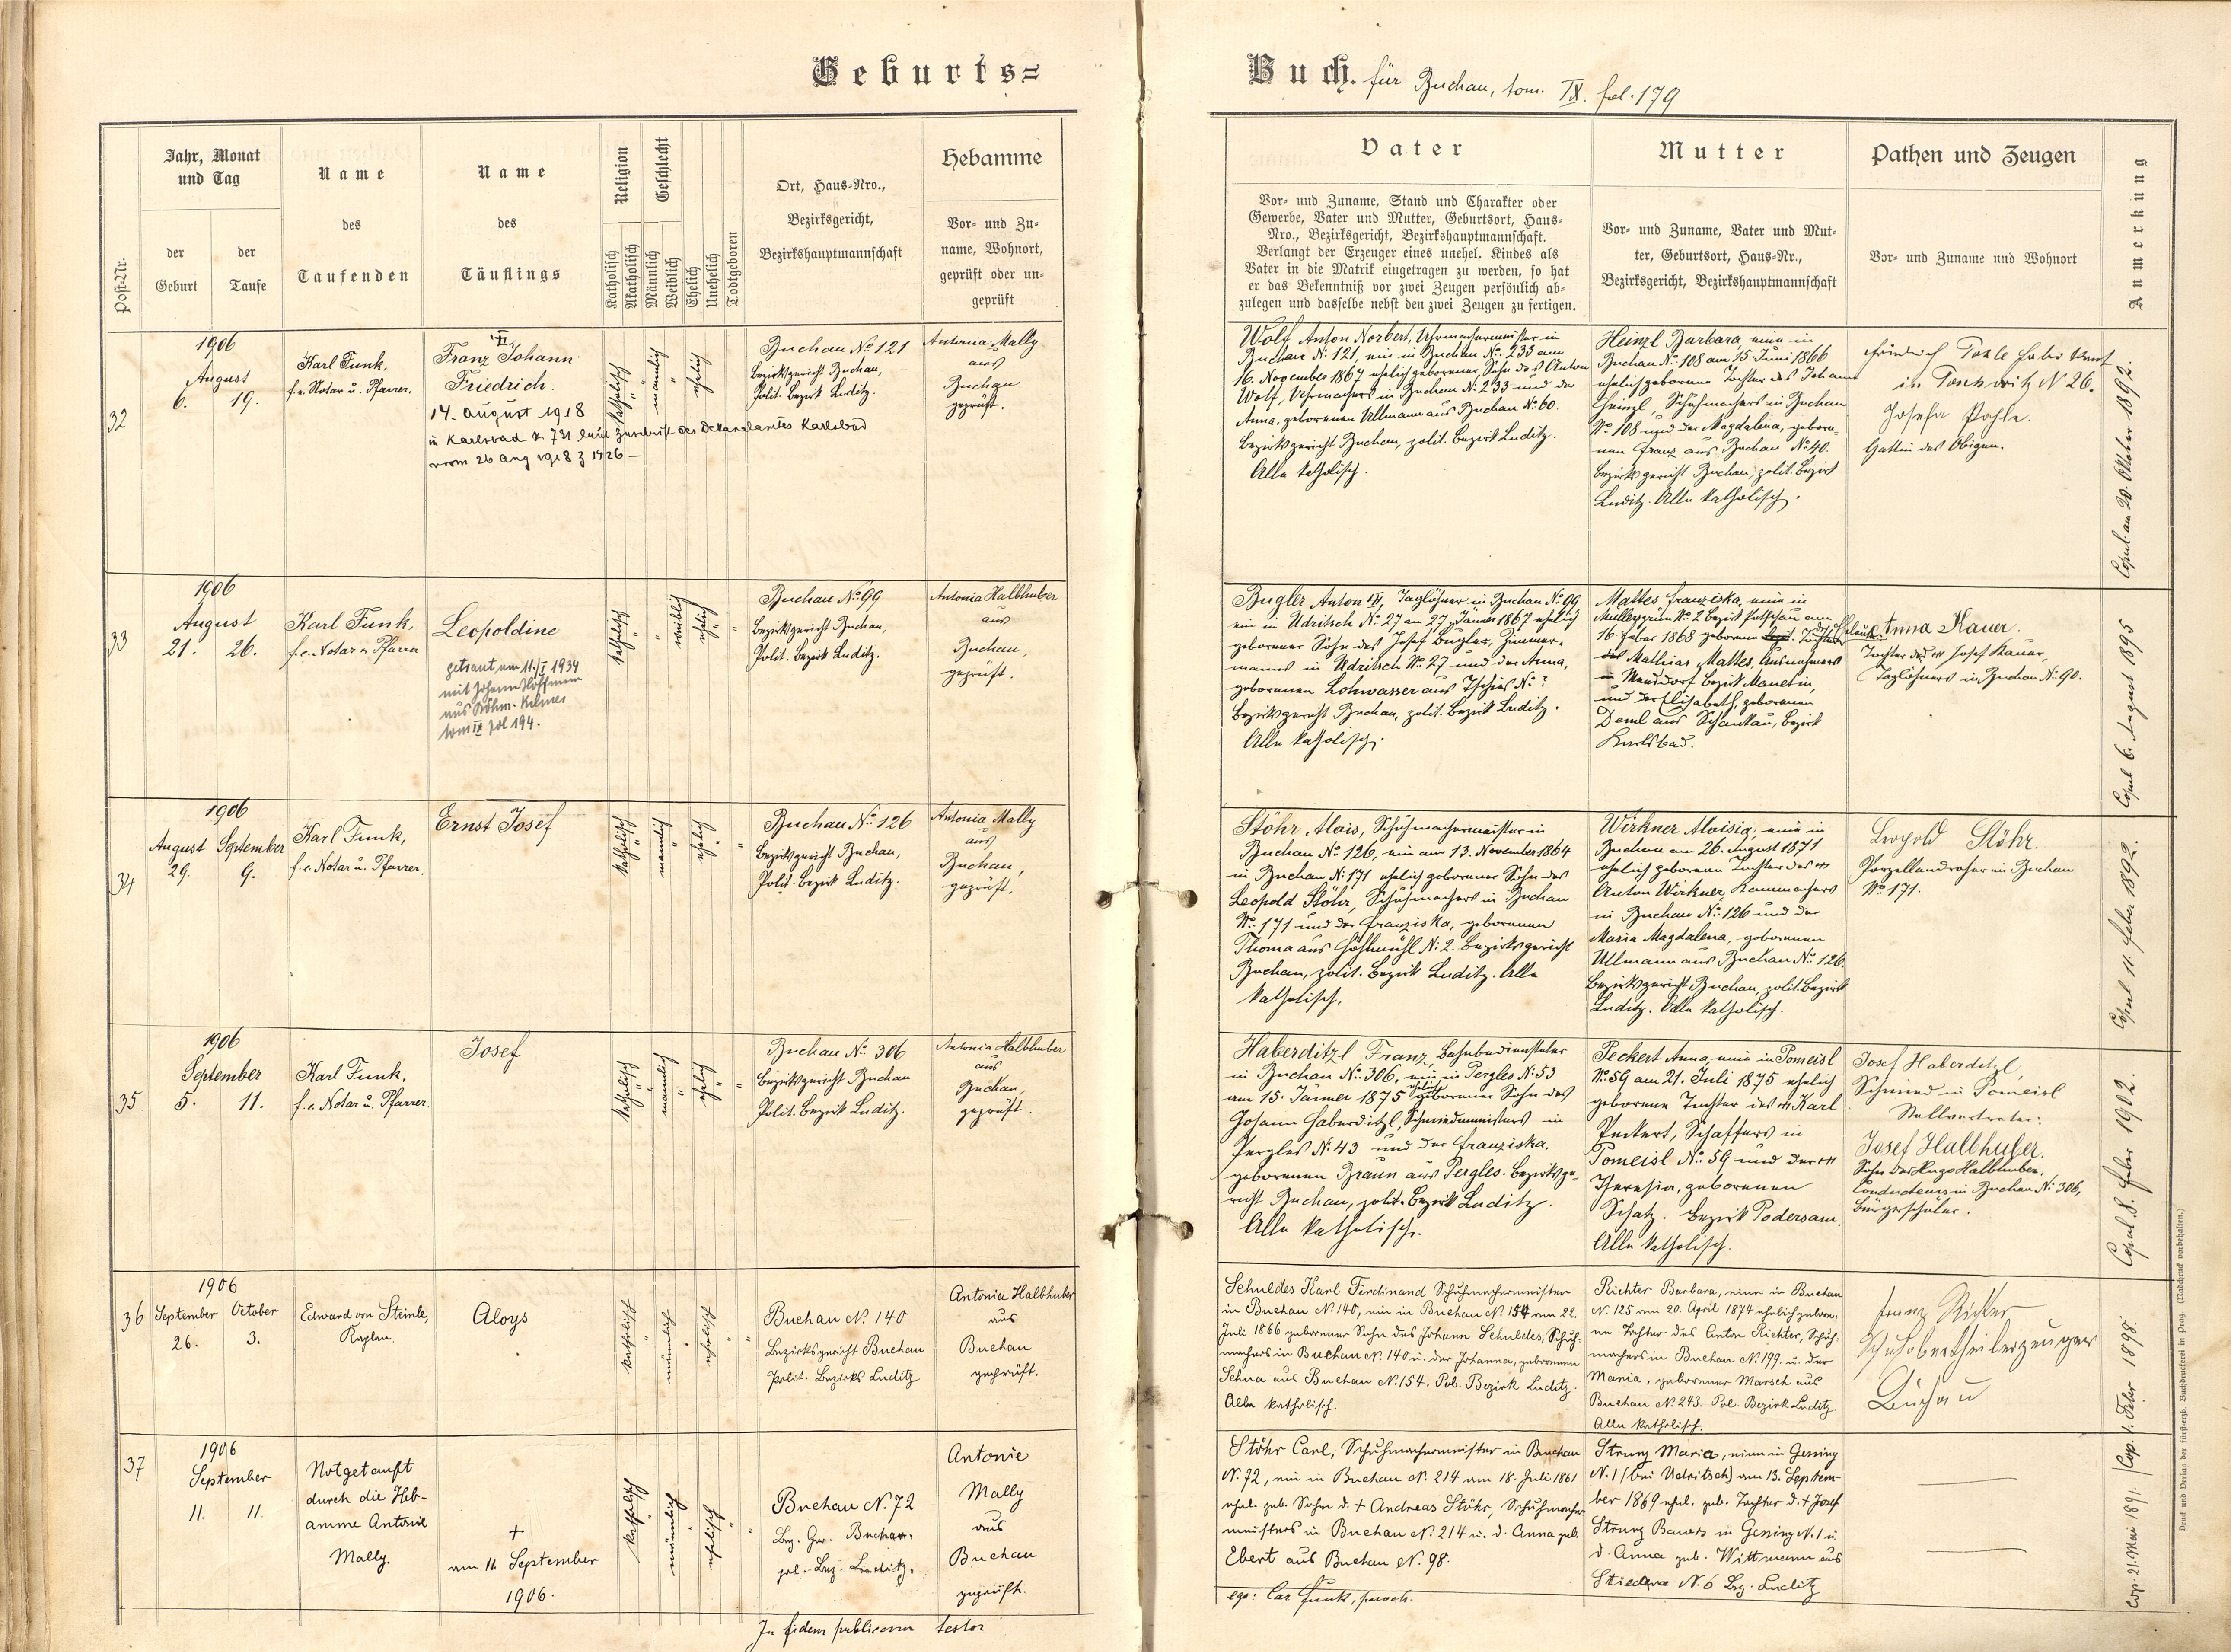 Geburts=
Buch. für Buchau, tom. IX. fol. 179
Post-Nr.
Jahr, Monat
und Tag
der
Geburt
der
Taufe
Name
des
Taufenden
Name
des
Täuflings
Religion
Katholisch
Akatholisch
Geschlecht
Männlich
Weiblich
Ehelich
Unehelich
Todtgeboren
Ort, Haus=Nro.,
Bezirksgericht,
Bezirkshauptmannschaft
Hebamme
Vor= und Zu=
name, Wohnort,
geprüft oder un=
geprüft
Vater
Vor= und Zuname, Stand und Charakter oder
Gewerbe, Vater und Mutter, Geburtsort, Haus=
Nro., Bezirksgericht, Bezirkshauptmannschaft.
Verlangt der Erzeuger eines unehel. Kindes als
Vater in die Matrik eingetragen zu werden, so hat
er das Bekenntniß vor zwei Zeugen persönlich ab=
zulegen und dasselbe nebst den zwei Zeugen zu fertigen.
Mutter
Vor= und Zuname, Vater und Mut=
ter, Geburtsort, Haus=Nr.,
Bezirksgericht, Bezirkshauptmannschaft
Pathen und Zeugen
Vor= und Zuname und Wohnort
Anmerkung
32
1906
August
6. 19.
Karl Funk,
f. e. Notar u. Pfarrer.
Franz Johann
Friedrich.
14. August 1918
in Karlsbad z 731 laut Zuschrift des Dekanalamtes Karlsbad
vom 26 Aug 1918 z 1426 —
katholisch
männlich
ehelich
Buchau No. 121
Bezirksgericht Buchau,
Polit. Bezirk Luditz.
Antonia Mally
aus
Buchau
geprüft.
Wolf Anton Norbert, Uhrmachermeister in
Buchau N. 121, wie in Buchau No. 233 am
16. November 1867 ehelich geborener Sohn des Anton
Wolf, Uhrmachers in Buchau N. 233 und der
Anna, geborenen Ullmann aus Buchau No. 60.
Bezirksgericht Buchau, polit. Bezirk Luditz.
Alle katholisch.
Heinzl Barbara, wie in
Buchau No. 108 am 15. Juni 1866
ehelich geborene Tochter des Johann
Heinzl, Schuhmachers in Buchau
No. 108 und der Magdalena, gebore=
nen Franz aus Buchau No. 40.
Bezirksgericht Buchau, polit. Bezirk
Luditz. Alle katholisch.
in N 26.
Josefa
Gattin des Obigen.
Copul. am 20. Oktober 1892.
33
1906
August
21. 26.
Karl Funk,
f. e. Notar u. Pfarrer
Leopoldine
getraut am 11./I 1934
mit Johann Hoffmann
aus Böhm.
tom IX fol 194.
katholisch
weiblich
ehelich
Buchau No. 99
Bezirksgericht Buchau,
Polit. Bezirk Luditz.
Antonia Halbhuber
aus
Buchau,
geprüft.
Bugler Anton, Taglöhner in Buchau No. 99
wie in Udritsch No. 27 am 27. Jänner 1867 ehelich
geborener Sohn des Josef Bugler, Zimmer=
manns in Udritsch No. 27 und der Anna,
geborenen Lohwasser aus Tschies No. ?
Bezirksgericht Buchau, polit. Bezirk Luditz.
Alle katholisch.
Mattes Franziska, wie in
Müllersgrün No. 2 Bezirk Petschau am
16. Feber 1868 geborene Tochter
des Mathias Mattes, Ausnehmers
in Bezirk Manetin,
und der Elisabeth, geborenen
Deml aus Schankau, Bezirk
Karlsbad.
Anna Kauer.
Tochter des Josef Kauer,
Taglöhners in Buchau No. 90.
Copul 6. August 1895
34
1906
August September
29. 9.
Karl Funk,
f. e. Notar u. Pfarrer.
Ernst Josef
katholisch
männlich
ehelich
Buchau No. 126
Bezirksgericht Buchau,
Polit. Bezirk Luditz.
Antonia Mally
aus
Buchau,
geprüft.
Stöhr Alois, Schuhmachermeister in
Buchau No. 126, wie am 13. November 1864
in Buchau N. 171 ehelich geborener Sohn des
Leopold Stöhr, Schuhmachers in Buchau
No. 171 und der Franziska, geborenen
Thoma aus Höflmühl N. 2. Bezirksgericht
Buchau, polit. Bezirk Luditz. Alle
katholisch.
Wirkner Aloisia, wie in
Buchau am 26. August 1871
ehelich geborene Tochter des
Anton Wirkner, Kammachers
in Buchau No. 126 und der
Maria Magdalena, geborenen
Ullmann aus Buchau No. 126.
Bezirksgericht Buchau, polit. Bezirk
Luditz. Alle katholisch.
Leopold Stöhr.
Porzellandreher in Buchau
No. 171.
Copul 11. Feber 1892.
35
1906
September
5. 11.
Karl Funk,
f. e. Notar u. Pfarrer.
Josef
katholisch
männlich
ehelich
Buchau No. 306
Bezirksgericht Buchau
Polit. Bezirk Luditz.
Antonia Halbhuber
aus
Buchau,
geprüft.
Haberditzl Franz, Bahnbediensteter
in Buchau No. 306, wie in Pergles N. 53
am 15. Jänner 1875 ehelich geborener Sohn des
Johann Haberditzl, Schmiedemeisters in
Pergles N. 43 und der Franziska,
geborenen Braun aus Pergles. Bezirksge=
richt Buchau, polit. Bezirk Luditz.
Alle katholisch.
Peckert Anna, wie in Pomeisl
No. 59 am 21. Juli 1875 ehelich
geborene Tochter des Karl
Peckert, Schaffers in
Pomeisl No. 59 und der
Theresia, geborenen
Schatz. Bezirk Podersam.
Alle katholisch.
Josef Haberditzl,
Schmied in Pomeisl
Stellvertreter:
Josef Halbhuber.
Sohn des Hugo Halbhuber,
Conducteurs in Buchau N. 306,
Bürgerschüler.
Copul. 8. Feber 1902.
36
1906
September October
26. 3.
Edward von Steinle,
Kaplan.
Aloys
katholisch
männlich
ehelich
Buchau No. 140
Bezirksgericht Buchau
Polit. Bezirks Luditz
Antonia Halbhuber
aus
Buchau
geprüft.
Schuldes Karl Ferdinand Schuhmachermeister
in Buchau N. 140, wie in Buchau N. 154 am 22.
Juli 1866 geborener Sohn des Johann Schuldes, Schuh=
machers in Buchau N. 140 u. der Johanna, geborenen
Sehna aus Buchau N. 154. Pol. Bezirk Luditz.
Alle katholisch.
Richter Barbara, wie in Buchau
N. 125 am 20. April 1874 ehelich gebore=
ne Tochter des Anton Richter, Schuh=
machers in Buchau N. 199 u. der
Maria, geborener Marsch aus
Buchau N. 243. Pol. Bezirk Luditz
Alle katholisch.
Franz Richter
Schuhobertheilerzeuger
Buchau
Cop. 1. Feber 1898.
37
1906
September
11. 11.
Notgetauft
durch die Heb=
amme Antonie
Mally.
+
am 11. September
1906.
katholisch
männlich
ehelich
Buchau N. 72
Bez. Ger. Buchau.
pol. Bez. Luditz.
Antonie
Mally
aus
Buchau
geprüft.
Stöhr Carl, Schuhmachermeister in Buchau
N. 72, wie in Buchau N. 214 am 18. Juli 1861
ehel. geb. Sohn d. + Andreas Stöhr, Schuhmacher
meisters in Buchau N. 214 u. d. Anna geb.
Ebert aus Buchau N. 98.
Strunz Maria, wie in Gessing
N. 1 (bei Udritsch) am 13. Septem=
ber 1869 ehel. geb. Tochter d. + Josef
Strunz Bauers in Gessing N. 1 u.
d. Anna geb. Wittmann aus
Stiedra N. 6 Bez. Luditz
Cop. 21. Mai 1891.
In fidem publicam testor
ego: Car Funk, paroch.
Druck und Verlag der fürsterzb. Buchdruckerei in Prag. (Nachdruck vorbehalten.)